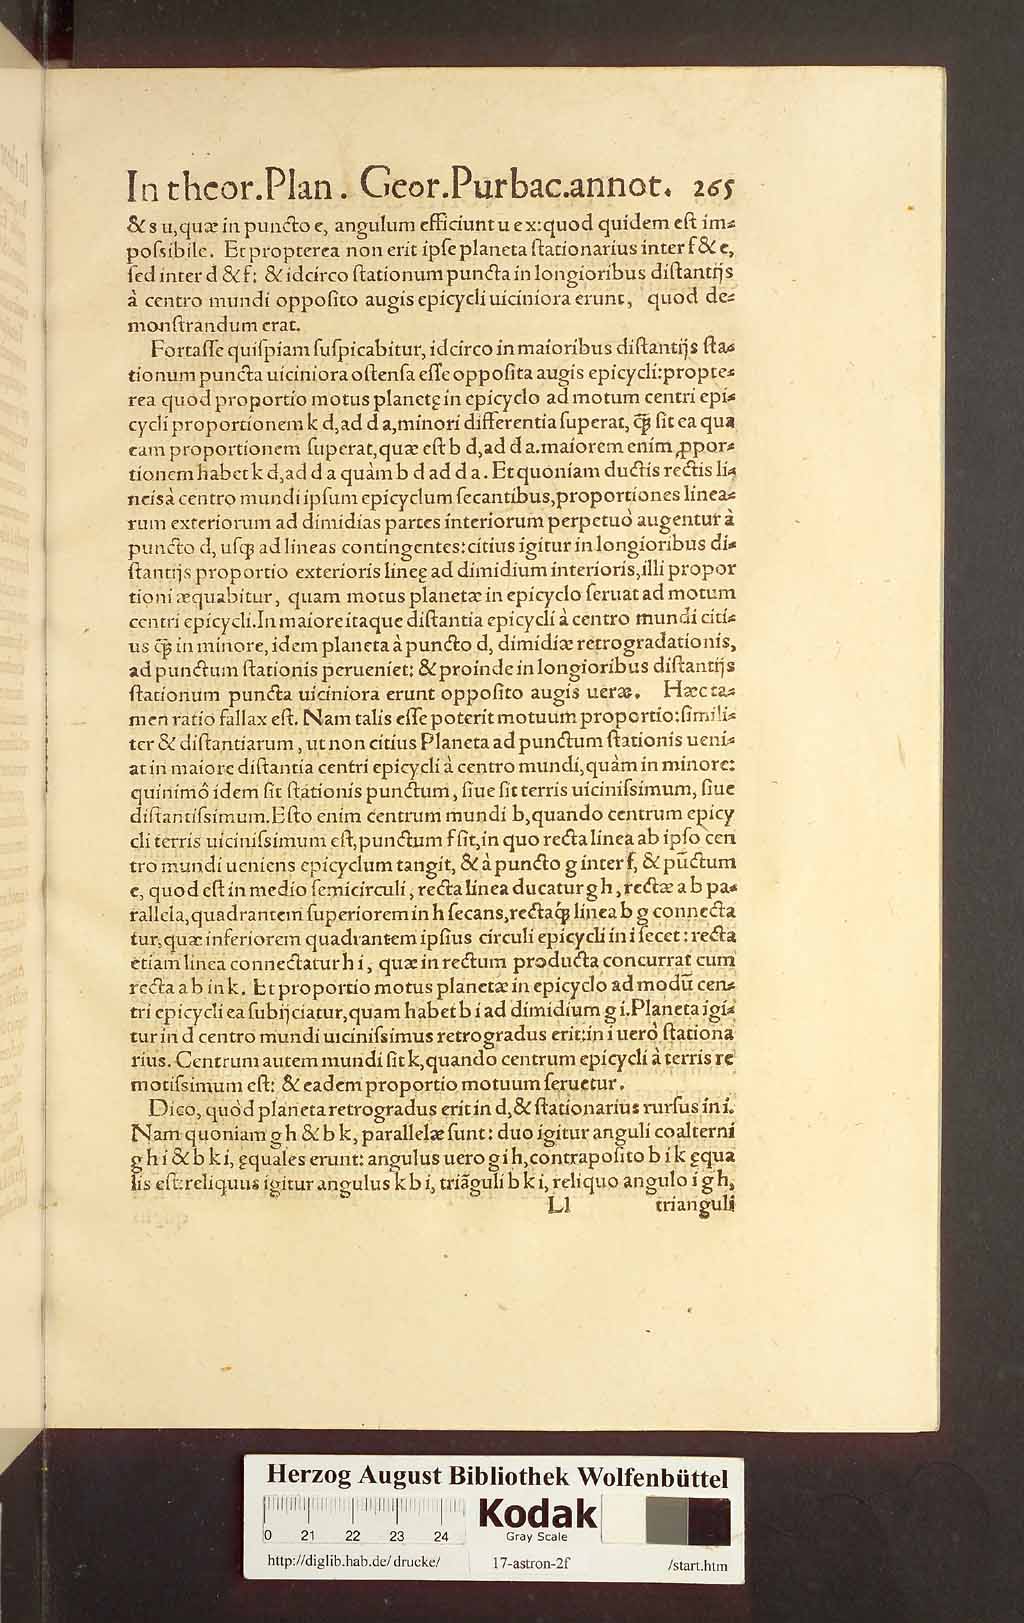 In theor.Plan. Geor.Purbac.annot. 265
& s u, quæ in puncto e, angulum efficiunt u e x: quod quidem eſt im⸗
poſsibile. Et propterea non erit ipſe planeta ſtationarius inter f & e,
ſed inter d & f: & idcirco ſtationum puncta in longioribus diſtantijs
à centro mundi oppoſito augis epicycli uiciniora erunt, quod de⸗
monſtrandum erat.
Fortaſſe quiſpiam ſuſpicabitur, idcirco in maioribus diſtantijs ſta⸗
tionum puncta uiciniora oſtenſa eſſe oppoſita augis epicycli: propte⸗
rea quod proportio motus planetę in epicyclo ad motum centri epi⸗
cycli proportionem k d, ad d a, minori differentia ſuperat, q̃ꝫ ſit ea qua
eam proportionem ſuperat, quæ eſt b d, ad d a. maiorem enim ꝓpor⸗
tionem habet k d, ad d a quàm b d ad d a. Et quoniam ductis rectis li⸗
neis à centro mundi ipſum epicyclum ſecantibus, proportiones linea⸗
rum exteriorum ad dimidias partes interiorum perpetuò augentur à
puncto d, uſqꝫ ad lineas contingentes: citius igitur in longioribus di⸗
ſtantijs proportio exterioris lineę ad dimidium interioris, illi propor
tioni æquabitur, quam motus planetæ in epicyclo ſeruat ad motum
centri epicycli. In maiore itaque diſtantia epicycli à centro mundi citi⸗
us q̃ꝫ in minore, idem planeta à puncto d, dimidiæ retrogradationis,
ad punctum ſtationis perueniet: & proinde in longioribus diſtantijs
ſtationum puncta uiciniora erunt oppoſito augis ueræ. Hæc ta⸗
men ratio fallax eſt. Nam talis eſſe poterit motuum proportio: ſimili⸗
ter & diſtantiarum, ut non citius Planeta ad punctum ſtationis ueni⸗
at in maiore diſtantia centri epicycli à centro mundi, quàm in minore:
quinimô idem ſit ſtationis punctum, ſiue ſit terris uiciniſsimum, ſiue
diſtantiſsimum. Eſto enim centrum mundi b, quando centrum epicy
cli terris uiciniſsimum eſt, punctum f ſit, in quo recta linea ab ipſo cen
tro mundi ueniens epicyclum tangit, & à puncto g inter f, & pũctum
e, quod eſt in medio ſemicirculi, recta linea ducatur g h, rectæ a b pa⸗
rallela, quadrantem ſuperiorem in h ſecans, rectaq́ꝫ linea b g connecta
tur, quæ inferiorem quadrantem ipſius circuli epicycli in i ſecet: recta
etiam linea connectatur h i, quæ in rectum producta concurrat cum
recta a b in k. Et proportio motus planetæ in epicyclo ad modũ cen⸗
tri epicycli ea ſubijciatur, quam habet b i ad dimidium g i. Planeta igi⸗
tur in d centro mundi uiciniſsimus retrogradus erit: in i uerò ſtationa
rius. Centrum autem mundi ſit k, quando centrum epicycli à terris re
motiſsimum eſt: & eadem proportio motuum ſeruetur.
Dico, quòd planeta retrogradus erit in d, & ſtationarius rurſus in i.
Nam quoniam g h & b k, parallelæ ſunt: duo igitur anguli coalterni
g h i & b k i, ęquales erunt: angulus uero g i h, contrapoſito b i k ęqua
lis eſt: reliquus igitur angulus k b i, triãguli b k i, reliquo angulo i g h,
Ll trianguli
Herzog August Bibliothek Wolfenbüttel
Kodak
Gray Scale
0 21 22 23 24
http://diglib.hab.de/drucke/ 17-astron-2f /start.htm